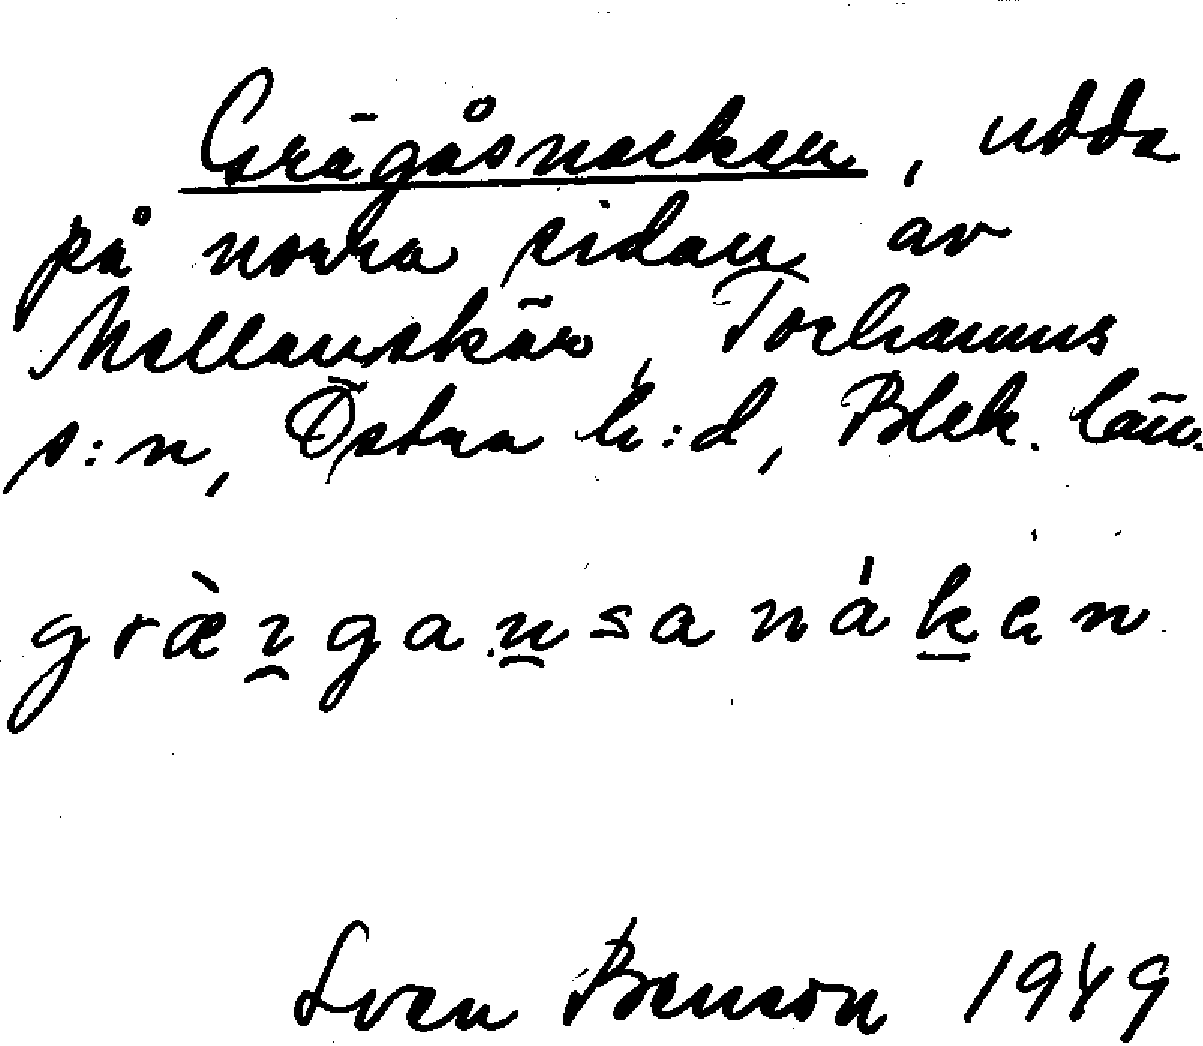 Grägåsnacken, udde
på norra sidan av
Mellanskär, Torhamns
s:n, Östra h:d, Blek. län.
Sven Benson 1949